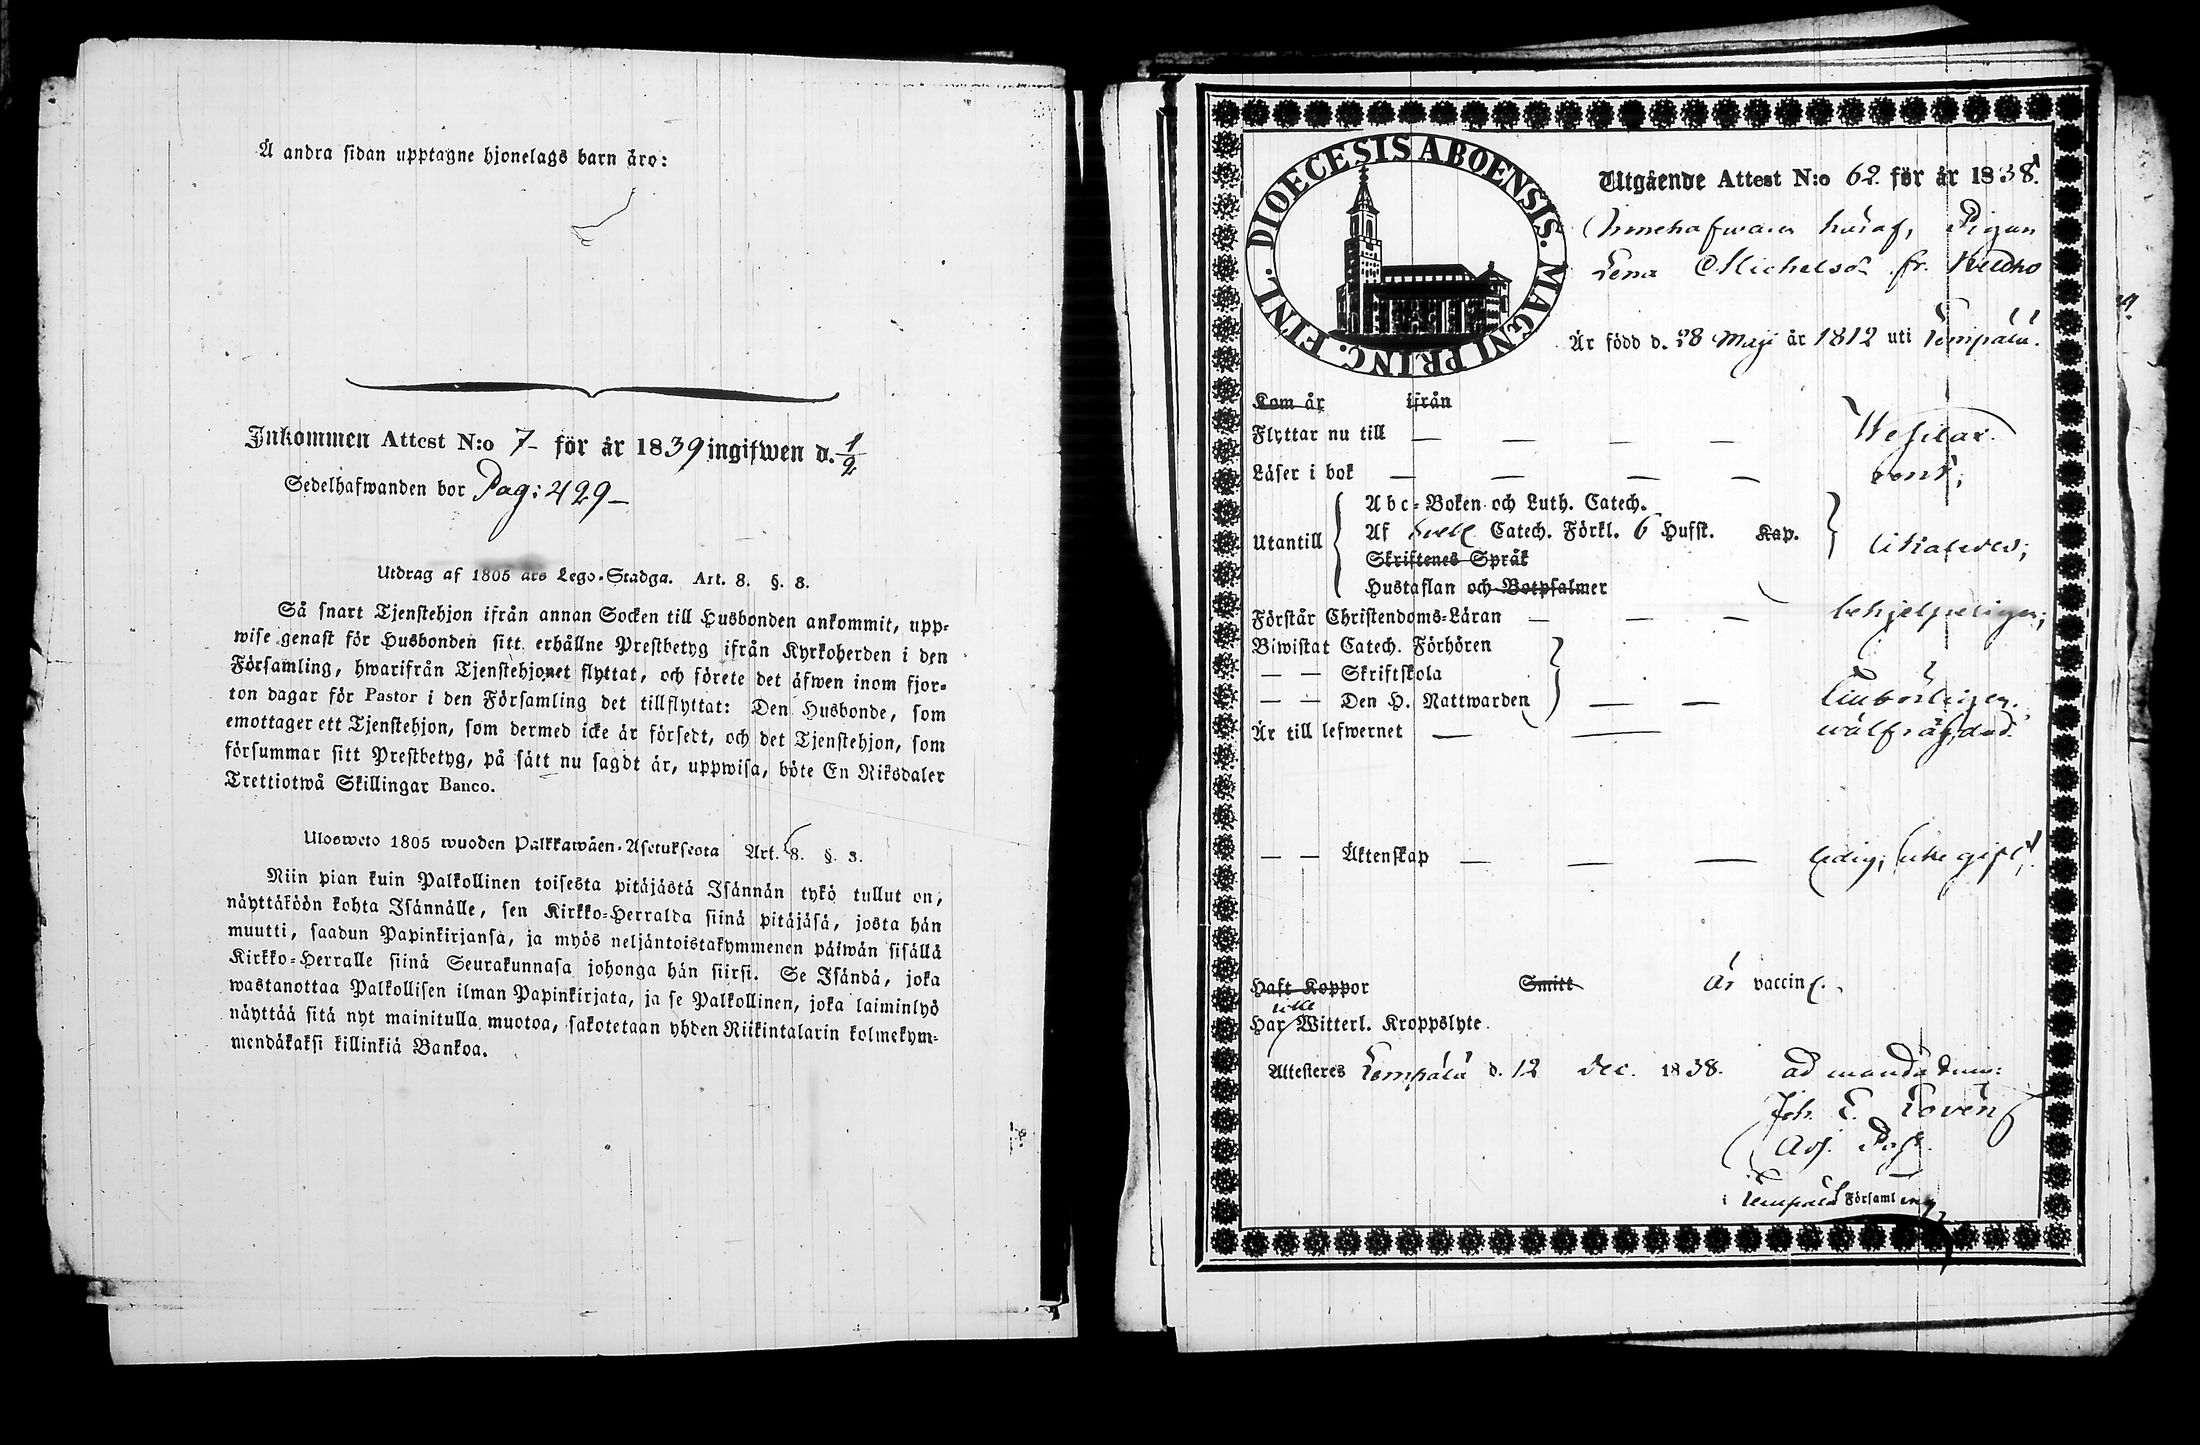 Å andra sidan upptagne hjonelags barn äro:
Inkommen Attest N:o 7 – för år 1839 ingifwen d. 1/2
Sedelhafwanden bor Pag: 429 –
Utdrag af 1805 års Lego-Stadga. Art. 8. §. 8.
Så snart Tjenstehjon ifrån annan Socken till Husbonden ankommit, upp-
wise genast för Husbonden sitt erhållne Prestbetyg ifrån Kyrkoherden i den
Församling, hwarifrån Tjenstehjonet flyttat, och förete det äfwen inom fjor-
ton dagar för Pastor i den Församling det tillflyttat: Den Husbonde, som
emottager ett Tjenstehjon, som dermed icke är försedt, och det Tjenstehjon, som
försummar sitt Prestbetyg, på sätt nu sagdt är, uppwisa, böte En Riksdaler
Trettiotwå Skillingar Banco.
Ulosweto 1805 wuoden Palkkawäen-Asetuksesta Art. 8. §. 8.
Niin pian kuin Palkollinen toisesta pitäjästä Isännän tykö tullut on,
näyttäköön kohta Isännälle, sen Kirkko-Herralda siinä pitäjäsä, josta hän
muutti, saadun Papinkirjansa, ja myös neljäntoistakymmenen päiwän sisällä
Kirkko-Herralle siinä Seurakunnasa johonga hän siirsi. Se Isändä, joka
wastanottaa Palkollisen ilman Papinkirjata, ja se Palkollinen, joka laiminlyö
näyttää sitä nyt mainitulla muotoa, sakotetaan yhden Riikintalarin kolmekym-
mendäkaksi killinkiä Bankoa.
DIOECESIS ABOENSIS. MAGNI PRINC. FINL.
Utgående Attest N:o 62. för år 1838.
Innehafwaren häraf, Pigan
Lena Michelsdr fr.
Är född d. 28 Maji år 1812 uti Lempälä.
Kom år ifrån
Flyttar nu till — — — — Wesilax.
Läser i bok — — — — rent;
Utantill
Abc-Boken och Luth. Catech.
Af Catech. Förkl. 6 Hufst. Kap.
Skriftenes Språk
Hustaflan och Botpsalmer
likaledes;
Förstår Christendoms-Läran — — — behjelpeligen;
Biwistat Catech. Förhören
— — Skriftskola
— — Den H. Nattwarden — — tillbörligen.
Är till lefwernet — — wälfräjdad.
— — Äktenskap — — — ledig; icke gift;
Haft Koppor Smitt är vaccin.
icke
Har Witterl. Kroppslyte
Attesteres Lempälä d. 12 Dec. 1838. ad mandatum:
Joh. E. Lovén
Adj. Past.
i Lempälä Församling,